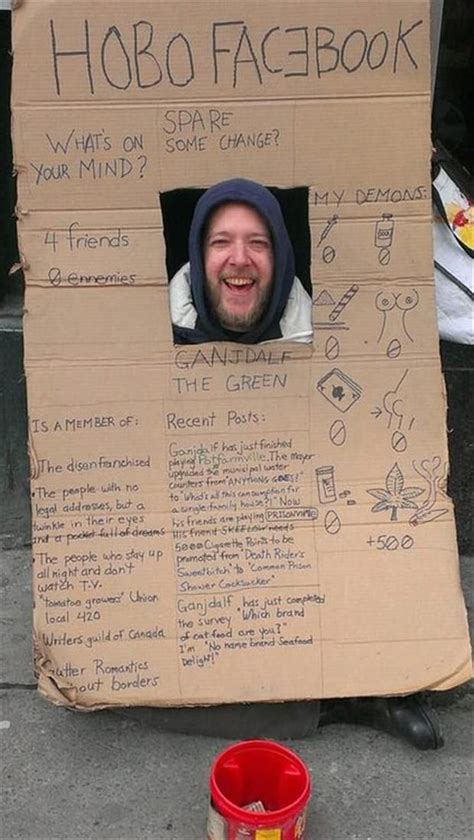 HOBO FACEBOOK
WHAT'S ON
YOUR MIND?
SPARE
SOME CHANGE?
4 friends
0 ennemies
MY DEMONS:
0
0
0
0
0
0
0
+500
GANJDALF
THE GREEN
IS A MEMBER OF:
The disenfranchised
The people with no
legal addresses, but a
twinkle in their eyes
and a pocket full of dreams
The people who stay up
all night and don't
watch T.V.
"tomatoe growers" Union
local 420
Writers guild of Canada
Gutter Romantics
without borders
Recent Posts:
Ganjdalf has just finished
playing Potfarmville. The Mayor
upgraded the municipal water
counters from "ANYTHING GOES!"
to "What's all this consumption for
a single family house?!" Now
his friends are playing PRISONVILLE
His friend needs
5000 Cigarette Points to be
promoted from "Death Rider's
Sweetbitch" to "Common Prison
Shower Cocksucker"
Ganjdalf has just completed
the survey "Which brand
of cat food are you?"
I'm "No name brand Seafood
Delight!"